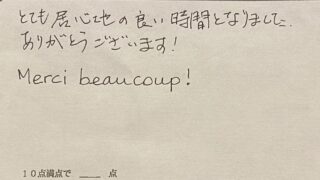 とても居心地の良い時間となりました。
ありがとうございます!
Merci beaucoup!
10点満点で ___ 点